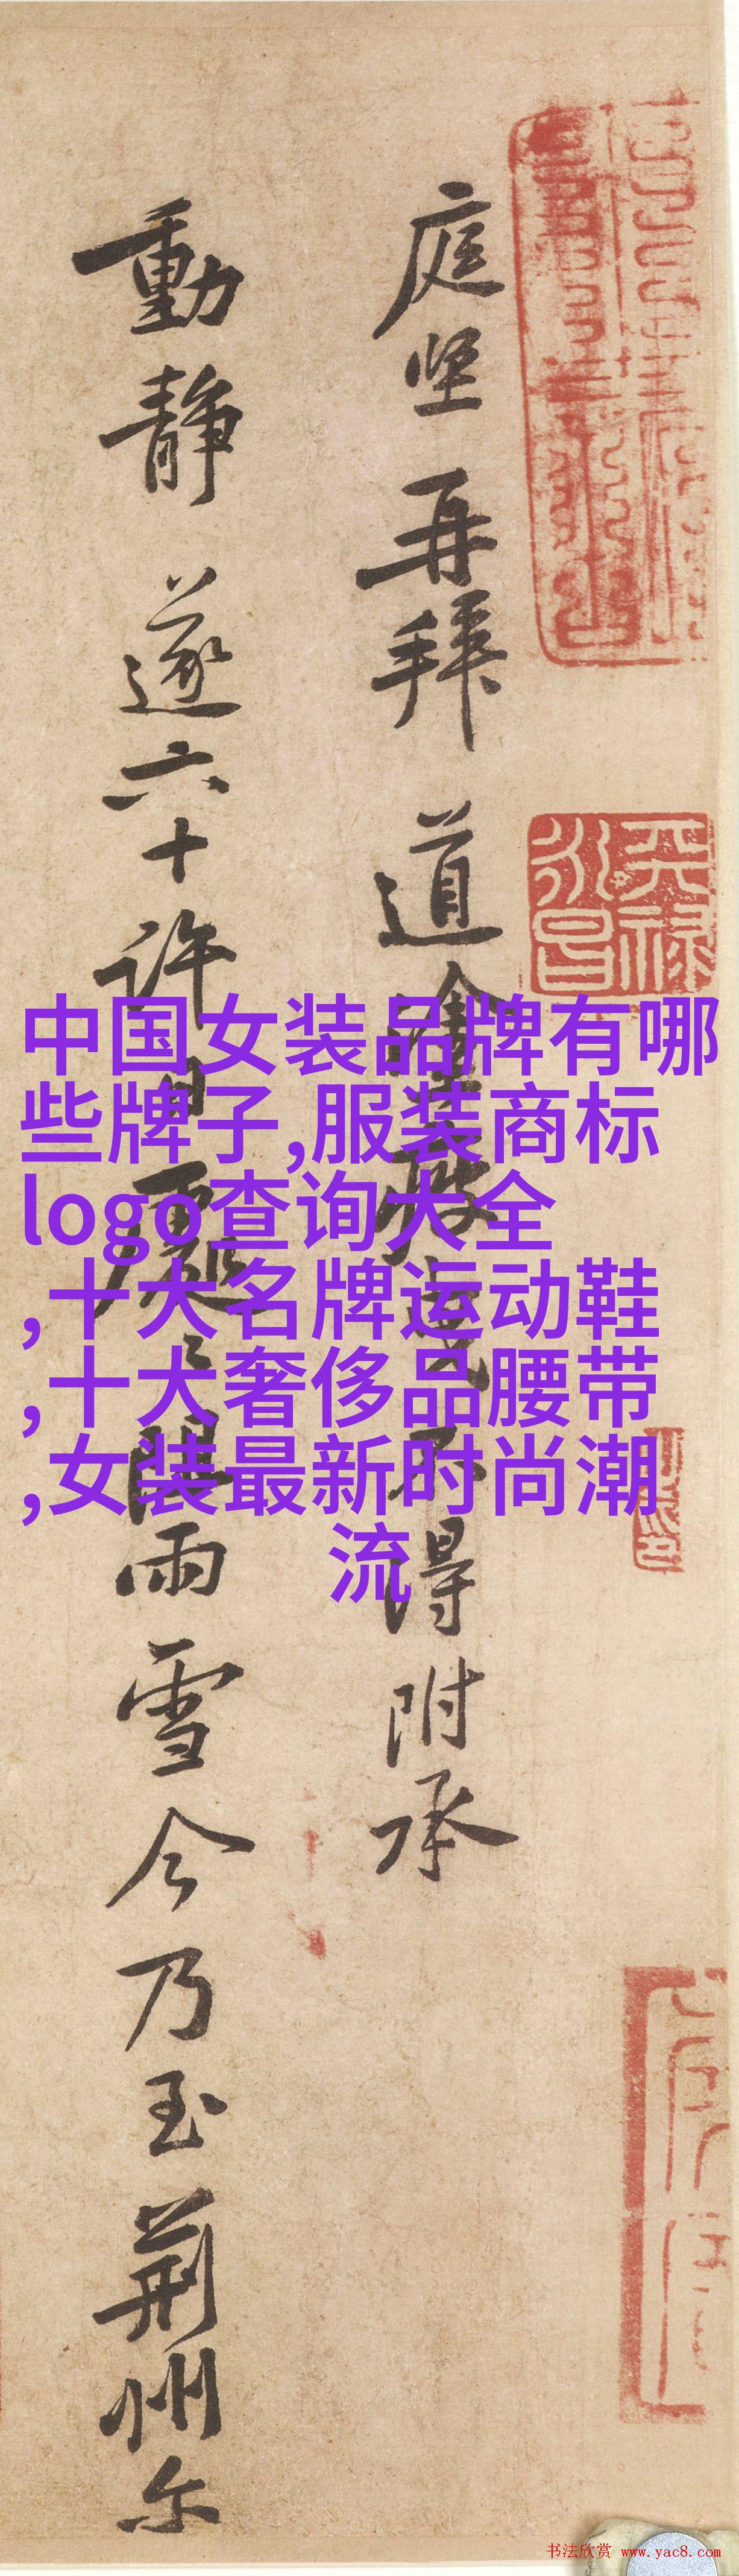 庭坚再拜道塗疲曳不得附承
動静遂六十許日處々阻雨雪今乃至荆州尔
天禄
永昌
中国女装品牌有哪
些牌子,服装商标
logo查询大全
,十大名牌运动鞋
,十大奢侈品腰带
,女装最新时尚潮
流
书法欣赏 www.yac8.com